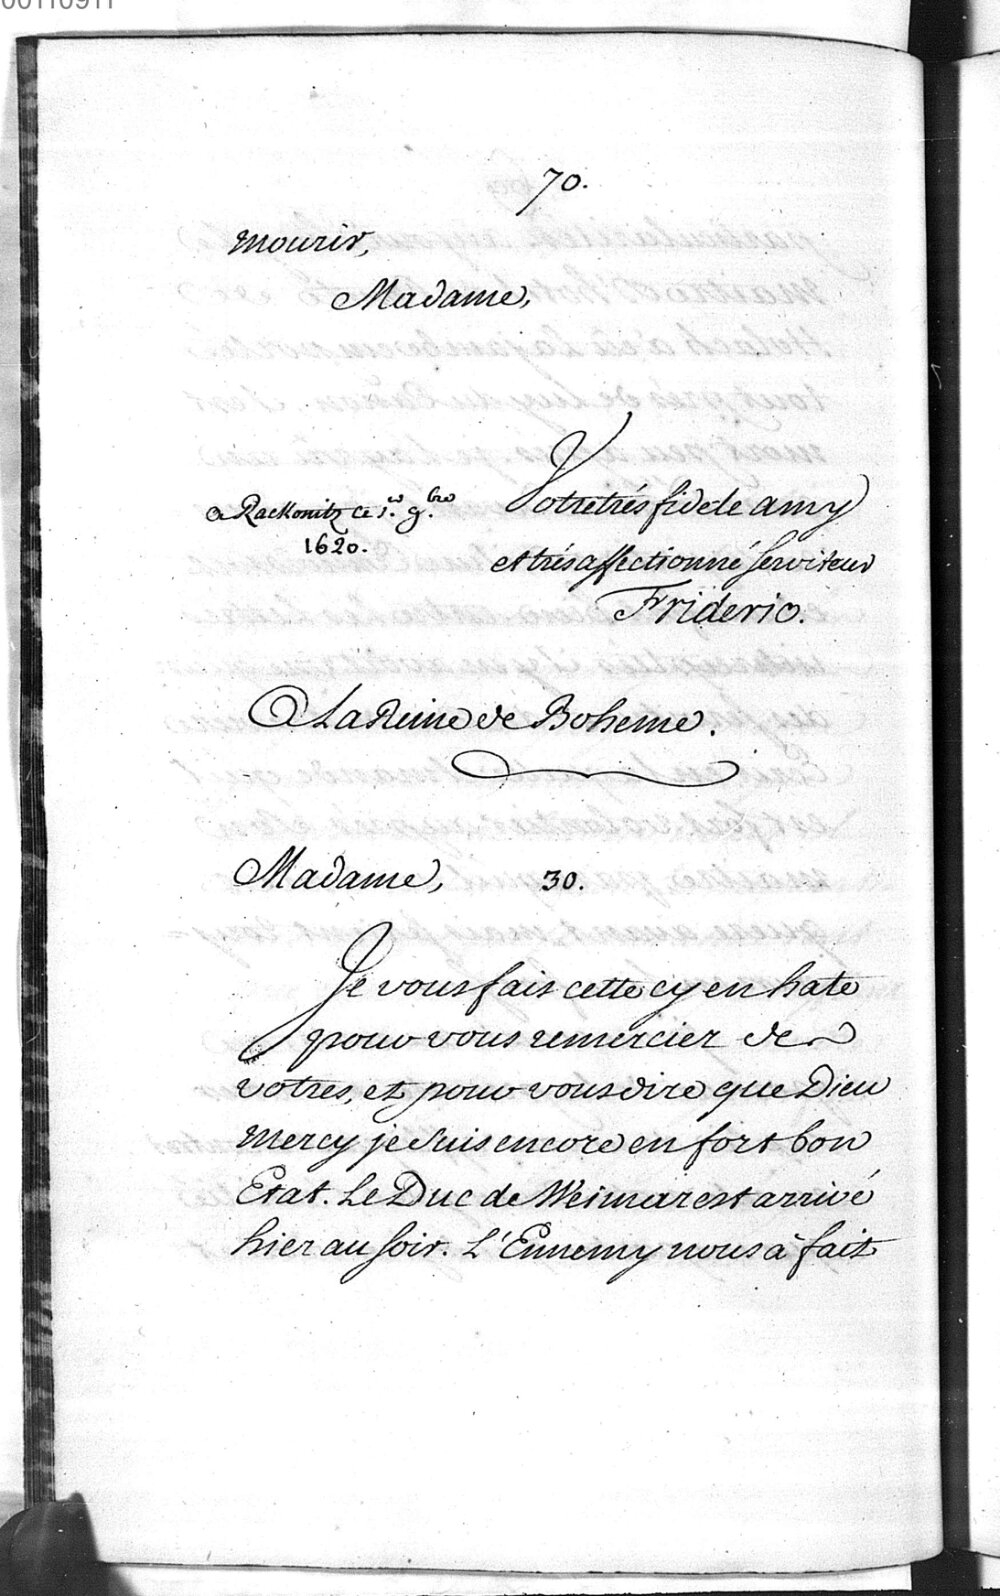 00110911
70.
mourir,
Madame,
Votre trés fidele amy
a Rackonitz ce 1.r 9.bre
1620.
et trés affectionné serviteur
Frideric.
A La Reine de Boheme.
Madame, 30.
Je vous fais cette cy en hate
pour vous remercier de
votres, et pour vous dire que Dieu
mercy je suis encore en fort bon
Etat. Le Duc de Weimar est arrivé
hier au soir. L'Ennemy nous à fait